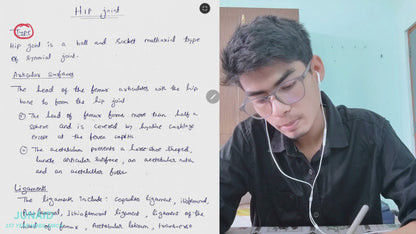 Hip joint
Type
Hip joint is a ball and socket multiaxial type
of synovial joint.
Articular Surfaces
The head of the femur articulates with the hip
bone to form the hip joint
The head of femur forms more than half a
sphere and is covered by hyaline cartilage
except at the fovea capitis
The acetabulum presents a horse-shoe shaped,
lunate articular surface, an acetabular notch
and an acetabular fossa
Ligaments
The ligaments include: Capsular ligament, iliofemoral,
Pubofemoral, Ischiofemoral ligament, ligament of the
head of femur, Acetabular labrum, transverse
JUNAID
1ST Y